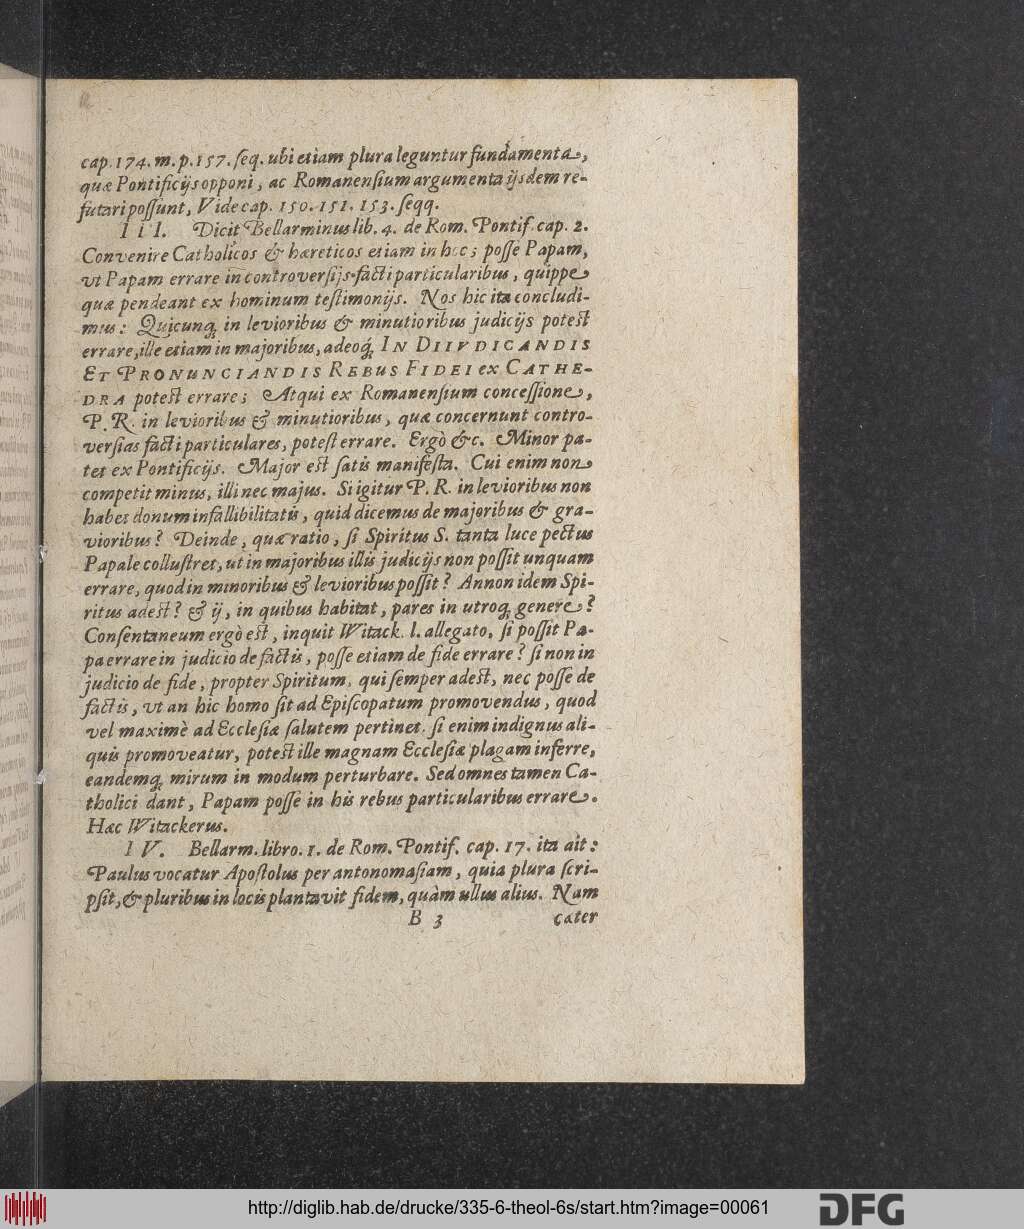 cap. 174. m. p. 157. seq. ubi etiam plura leguntur fundamenta,
quæ Pontificijs opponi, ac Romanensium argumenta ijsdem re-
futari possunt, Vide cap. 150. 151. 153. seqq.
III. Dicit Bellarminus lib. 4. de Rom. Pontif. cap. 2.
Convenire Catholicos & hæreticos etiam in hoc; posse Papam,
ut Papam errare in controversijs facti particularibus, quippe
quæ pendeant ex hominum testimonijs. Nos hic ita concludi-
mus: Quicunq; in levioribus & minutioribus judicijs potest
errare, ille etiam in majoribus, adeoq́; IN DIIVDICANDIS
ET PRONUNCIANDIS REBUS FIDEI ex CATHE-
DRA potest errare; Atqui ex Romanensium concessione,
P. R. in levioribus & minutioribus, quæ concernunt contro-
versias facti particulares, potest errare. Ergò &c. Minor pa-
tet ex Pontificijs. Major est satis manifesta. Cui enim non
competit minus, illi nec majus. Si igitur P. R. in levioribus non
habet donum infallibilitatis, quid dicemus de majoribus & gra-
vioribus? Deinde, quæ ratio, si Spiritus S. tanta luce pectus
Papale collustret, ut in majoribus illis judicijs non possit unquam
errare, quod in minoribus & levioribus possit? Annon idem Spi-
ritus adest? & ij, in quibus habitat, pares in utroq; genere?
Consentaneum ergò est, inquit Witack. l. allegato, si possit Pa-
pa errare in judicio de factis, posse etiam de fide errare? si non in
judicio de fide, propter Spiritum, qui semper adest, nec posse de
factis, ut an hic homo sit ad Episcopatum promovendus, quod
vel maximè ad Ecclesiæ salutem pertinet. si enim indignus ali-
quis promoveatur, potest ille magnam Ecclesiæ plagam inferre,
eandemq; mirum in modum perturbare. Sed omnes tamen Ca-
tholici dant, Papam posse in his rebus particularibus errare.
Hæc Witackerus.
IV. Bellarm. libro. 1. de Rom. Pontif. cap. 17. ita ait:
Paulus vocatur Apostolus per antonomasiam, quia plura scri-
psit, & pluribus in locis plantavit fidem, quàm ullus alius. Nam
B 3 cæter
http://diglib.hab.de/drucke/335-6-theol-6s/start.htm?image=00061
DFG